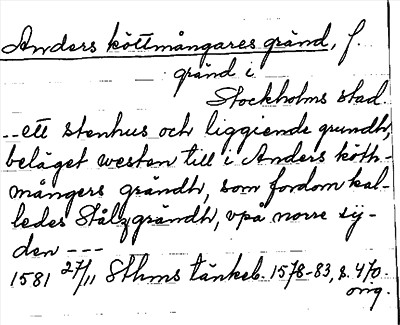 Anders köttmångares gränd, f.
gränd i
Stockholms stad.
--ett stenhus och liggiende grundh,
beläget westen till i Anders köth-
mångers grändh, som fordom kal-
ledes Stålzgrändh, vpå norre sy-
den ---
1581 27/11 Sthms tänkeb. 1578-83, s. 470.
orig.